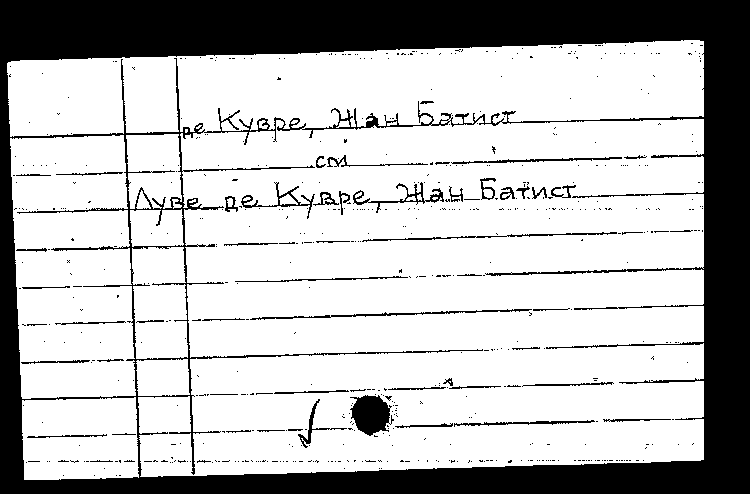 де Кувре, Жан Батист
см
Луве де Кувре, Жан Батист